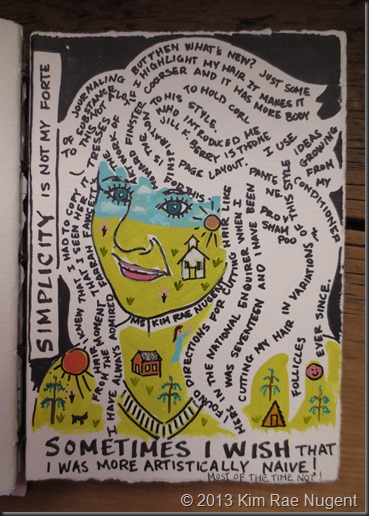 SIMPLICITY IS NOT MY FORTE
BUT THEN WHAT'S NEW? JUST SOME
JOURNALING
OF SUBSTANCE.
HIGHLIGHT MY HAIR. IT MAKES IT
COARSER AND IT HAS MORE BODY
TO HOLD CURL
TO HIS STYLE.
WHO INTRODUCED ME
JILL K. BERRY IS THE ONE
PAGE LAYOUT.
I USE
IDEAS
GROWING
FROM
MY
CONDITIONER
PANTENE
PRO V
SHAMPOO
OF THIS STYLE
I KNEW THAT I HAD TO COPY
THE MOMENT I SEEN HER
FARRAH FAWCETT'S TRESSES
I HAVE ALWAYS
FROM THE
HAIR
DIRECTIONS FOR CUTTING HAIR LIKE
HERS IN THE NATIONAL ENQUIRER WHEN I
I FOUND
WAS SEVENTEEN AND I HAVE BEEN
CUTTING MY HAIR IN VARIATIONS
FOLLICLES
EVER SINCE.
MS KIM RAE NUGENT
SOMETIMES I WISH THAT
I WAS MORE ARTISTICALLY NAIVE!
MOST OF THE TIME NOT!
© 2013 Kim Rae Nugent